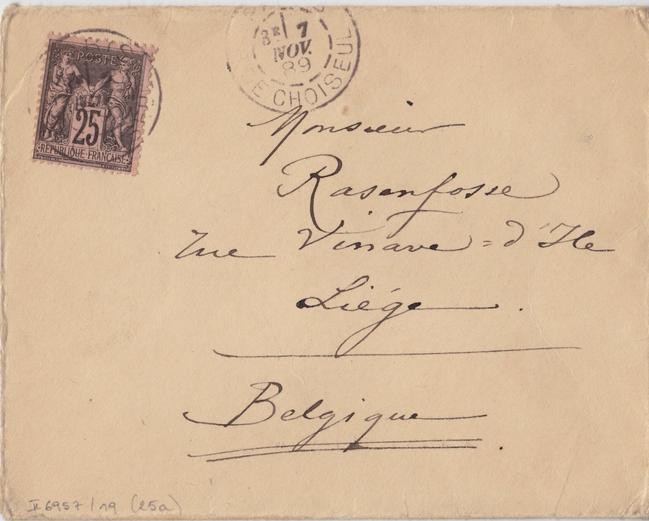 POSTES
25
REPUBLIQUE FRANÇAISE
7
NOV.
89
CHOISEUL
Monsieur
Rasenfosse
rue Vinave=d'Ile
Liége.
Belgique.
II 6957/19 (25a)